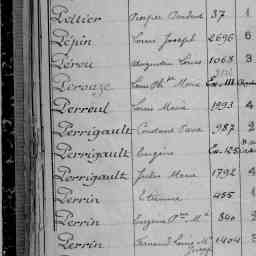 Peltier Prosper 37 1
Pépin Louis Joseph 2696 6
Pérou Augustin Louis 1068 3
Perouze Louis Marie Ex. III
Perreul Louis Marie 1993 4
Perrigault Constant 987 2
Perrigault Eugène Ex. 125
Perrigault Jules Marie 1792 4
Perrin Etienne 455 1
Perrin Eugène 840 2
Perrin Fernand Louis 1404 3